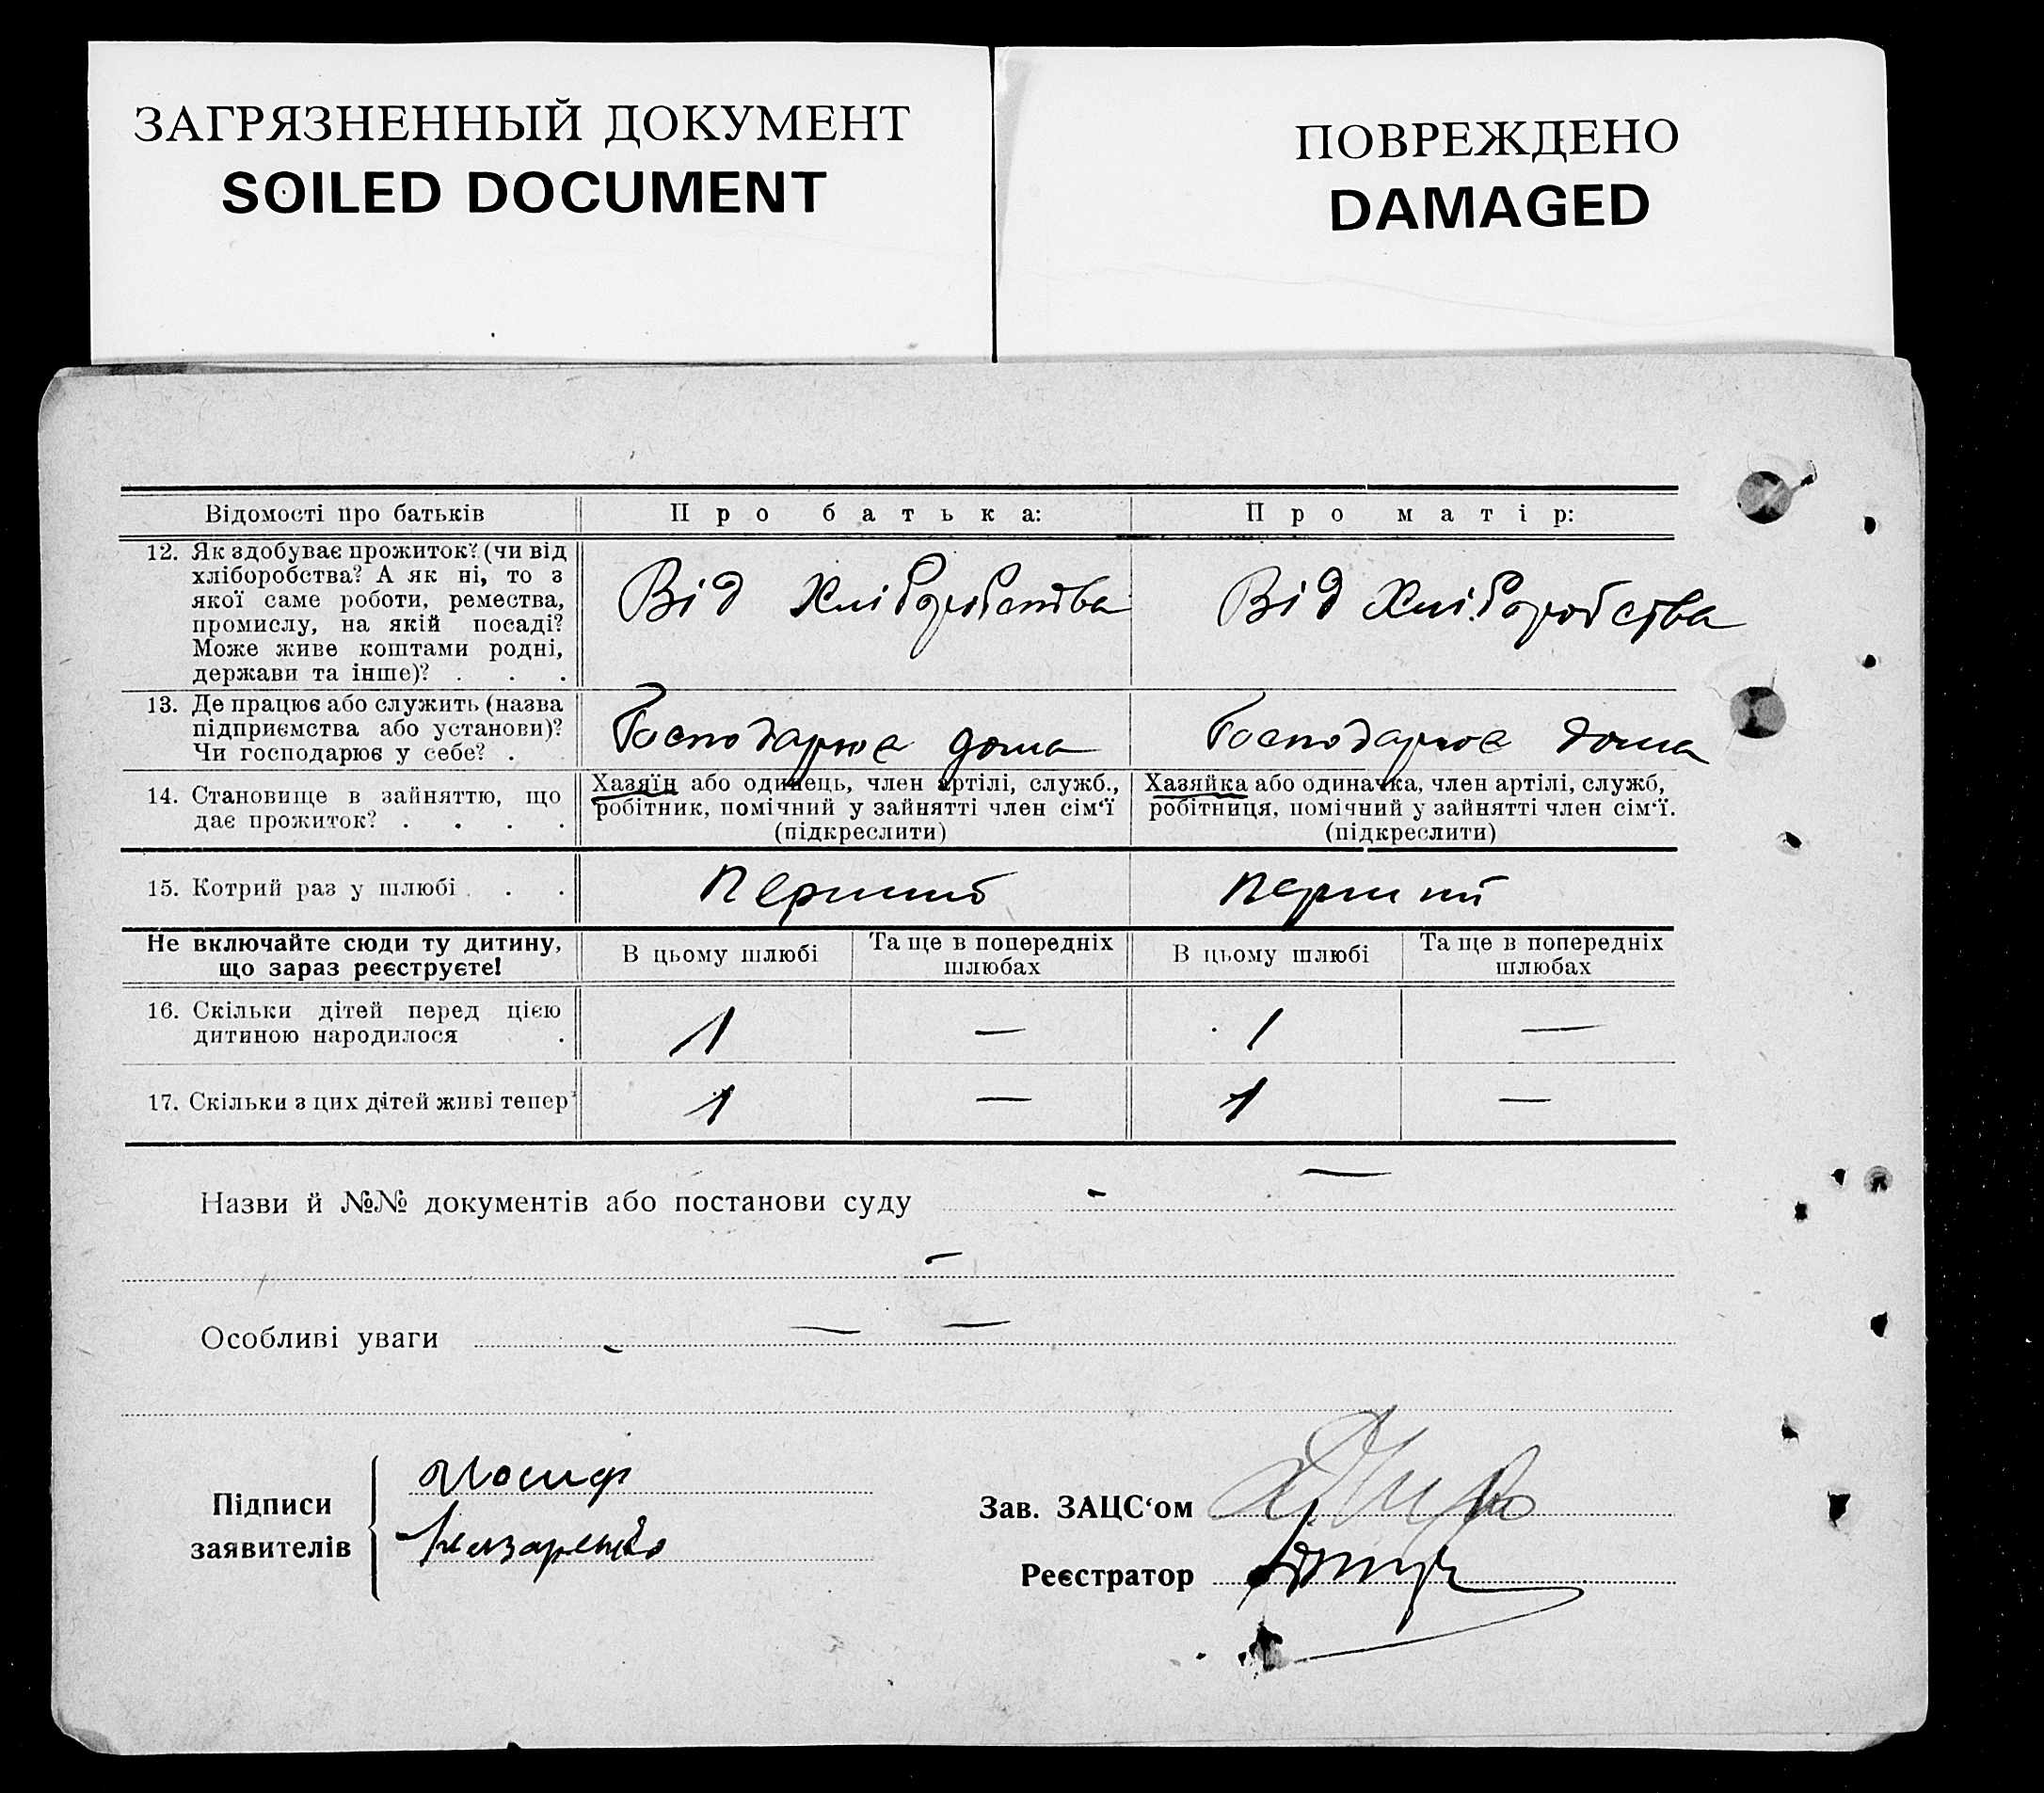 ЗАГРЯЗНЕННЫЙ ДОКУМЕНТ
SOILED DOCUMENT
ПОВРЕЖДЕНО
DAMAGED
Відомості про батьків
Про батька:
Про матір:
12. Як здобуває прожиток? (чи від
хліборобства? А як ні, то з
якої саме роботи, ремества,
промислу, на якій посаді?
Може живе коштами родні,
держави та інше)? . . .
Від Хліборобства
Від Хліборобства
13. Де працює або служить (назва
підприємства або установи)?
Чи господарює у себе? .
Господарює дома
Господарює дома
14. Становище в зайняттю, що
дає прожиток? . . . .
Хазяїн або одинець, член артілі, служб.,
робітник, помічний у зайнятті член сім‘ї
(підкреслити)
Хазяйка або одиначка, член артілі, служб,
робітниця, помічний у зайнятті член сім‘ї.
(підкреслити)
15. Котрий раз у шлюбі . . .
перший
перший
Не включайте сюди ту дитину,
що зараз реєструєте!
В цьому шлюбі
Та ще в попередніх
шлюбах
В цьому шлюбі
Та ще в попередніх
шлюбах
16. Скільки дітей перед цією
дитиною народилося .
1
—
1
—
17. Скільки з цих дітей живі тепер
1
—
1
—
Назви й №№ документів або постанови суду - —
-
Особливі уваги - — —
Підписи
заявителів
Иосиф
Назаренко
Зав. ЗАЦС‘ом
Реєстратор